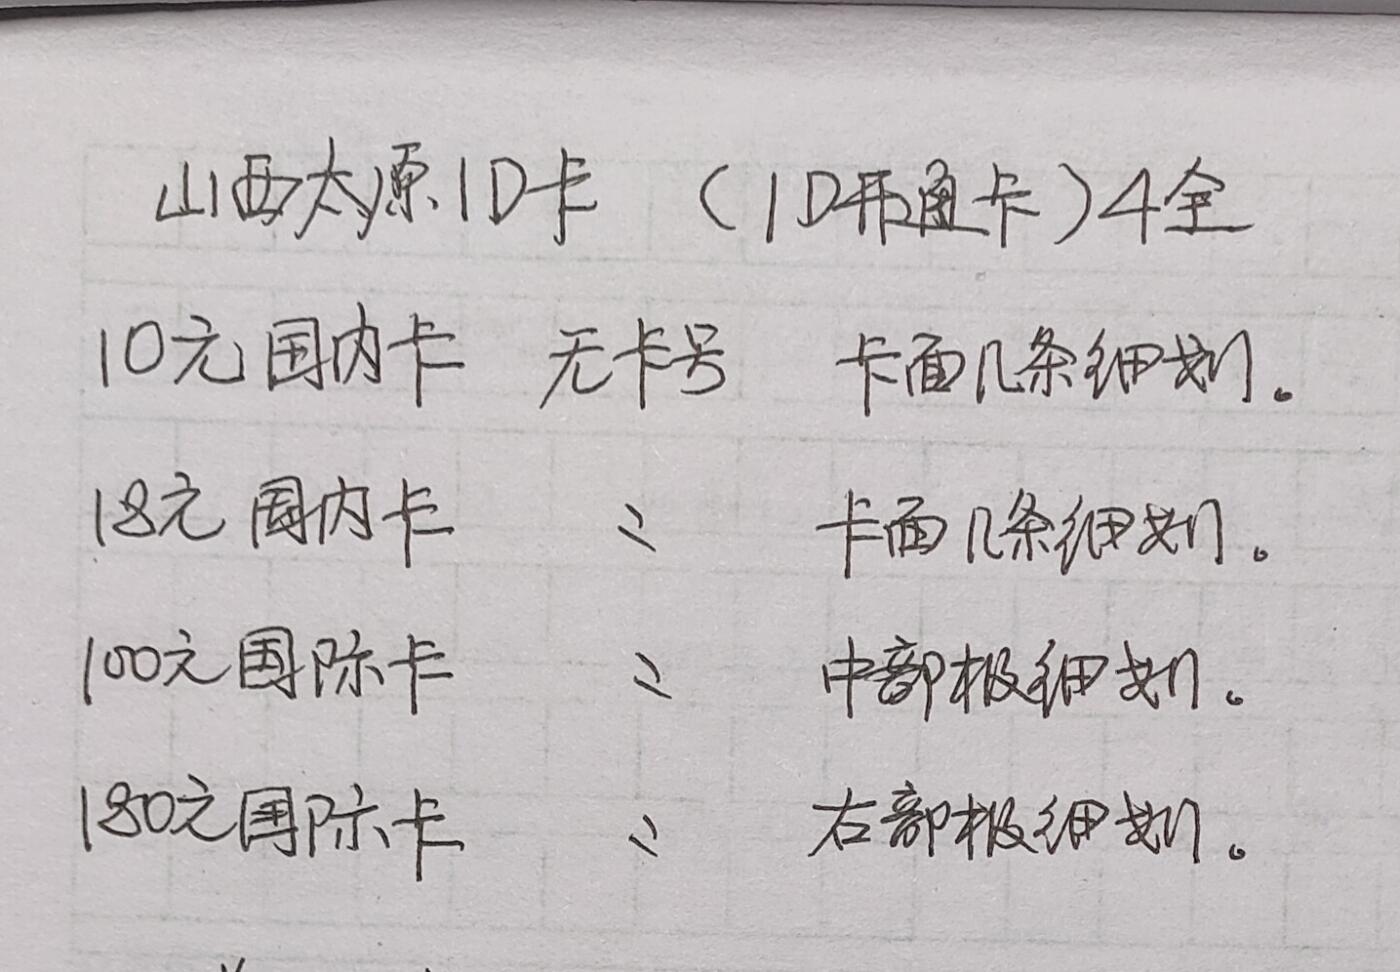 山西太原ID卡 (ID开通卡)4全
10元国内卡 无卡号 卡面几条细划。
18元国内卡 〃 卡面几条细划。
100元国际卡 〃 中部极细划。
180元国际卡 〃 右部极细划。